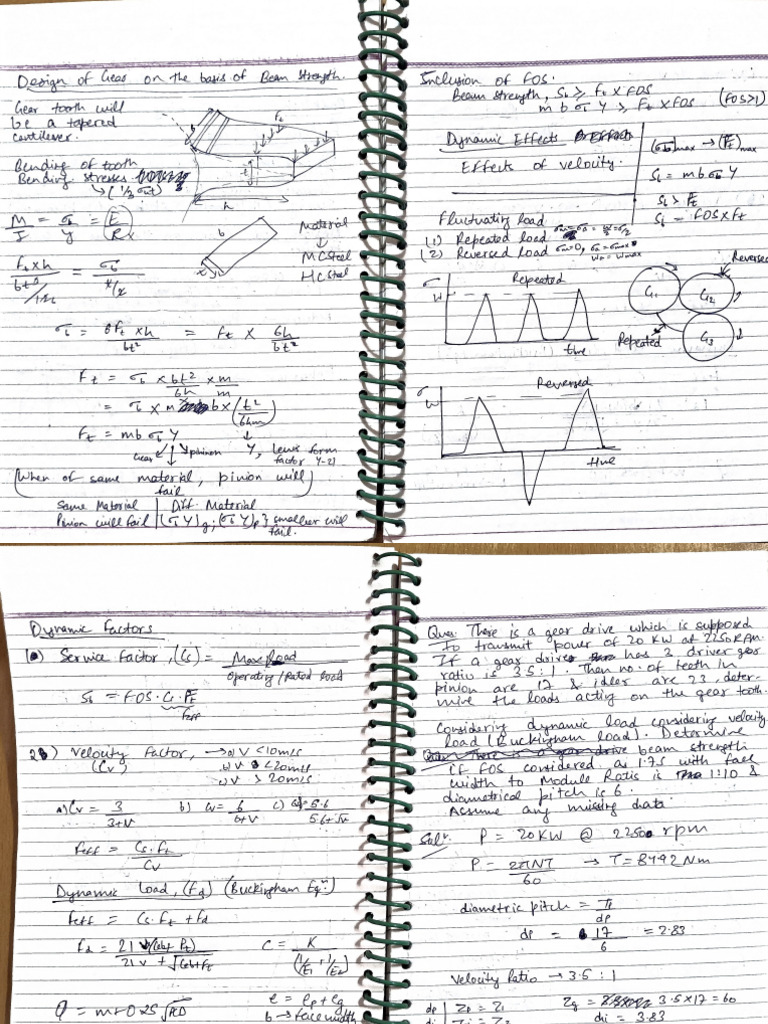 Design of Gear on the basis of Beam Strength.
Gear tooth will
be a tapered
cantilever.
Bending of tooth
Bending stresses
(1/3 σut)
M/I = σb/y = E/R
Ft
t
h
b
Material
↓
MCSteel
HCSteel
σb = 6Ft × h / bt² = Ft × 6h / bt²
Ft = σb × bt²/6h × m/m
= σb × m b × (t²/6hm)
Ft = m b σb Y
Gear pinion
Y, Lewis form
factor
(When of same material, pinion will
fail)
Same Material | Diff. Material
Pinion will fail | (σb Y)g ; (σb Y)p } smaller will
fail.
Inclusion of FOS.
Beam strength, Sb ≥ Ft × FOS
m b σb Y ≥ Ft × FOS (FOS>1)
Dynamic Effects
Effects of velocity.
(σb)max → (Ft)max
Sb = m b σb Y
Sb ≥ Ft
Sb = FOS × Ft
Fluctuating load
(1) Repeated load
(2) Reversed load
σ
W
Repeated
time
Reversed
G1
G2
G3
Repeated
σ
W
Reversed
time
Dynamic Factors
Service Factor, (Cs) = Max load / Operating/Rated load
Sb = FOS. Cs. Ft
Feff
Velocity Factor, → a) V < 10m/s
(Cv)
V < 20m/s
V > 20m/s
a) Cv = 3 / 3+V b) Cv = 6 / 6+V c) 5.6 / 5.6+√V
Feff = Cs.Ft / Cv
Dynamic Load, (Fd) (Buckingham Eqn)
Feff = Cs. Ft + Fd
Fd = 21 V (Ceb+Ft) / 21V + √Ceb+Ft
C = K / (1/E1 + 1/E2)
e = ep + eg
b → face width
Ques: There is a gear drive which is supposed
to transmit power of 20 KW at 2250 RPM.
If a gear drive has 3 driver gear
ratio is 3.5:1. Then no. of teeth in
pinion are 17 & idler are 23, deter-
mine the loads acting on the gear tooth.
Considering dynamic load considering velocity
load (Buckingham load). Determine
beam strength
if FOS considered as 1.75 with face
width to Module Ratio is 1:10 &
diametrical pitch is 6.
Assume any missing data.
Solⁿ. P = 20KW @ 2250 rpm
P = 2πNT / 60 → T = 8492 Nm
dp = 17 / 6 = 2.83
Velocity Ratio → 3.5 : 1
Zg = 3.5×17 = 60
dp | Zp = Z1
di = 3.83